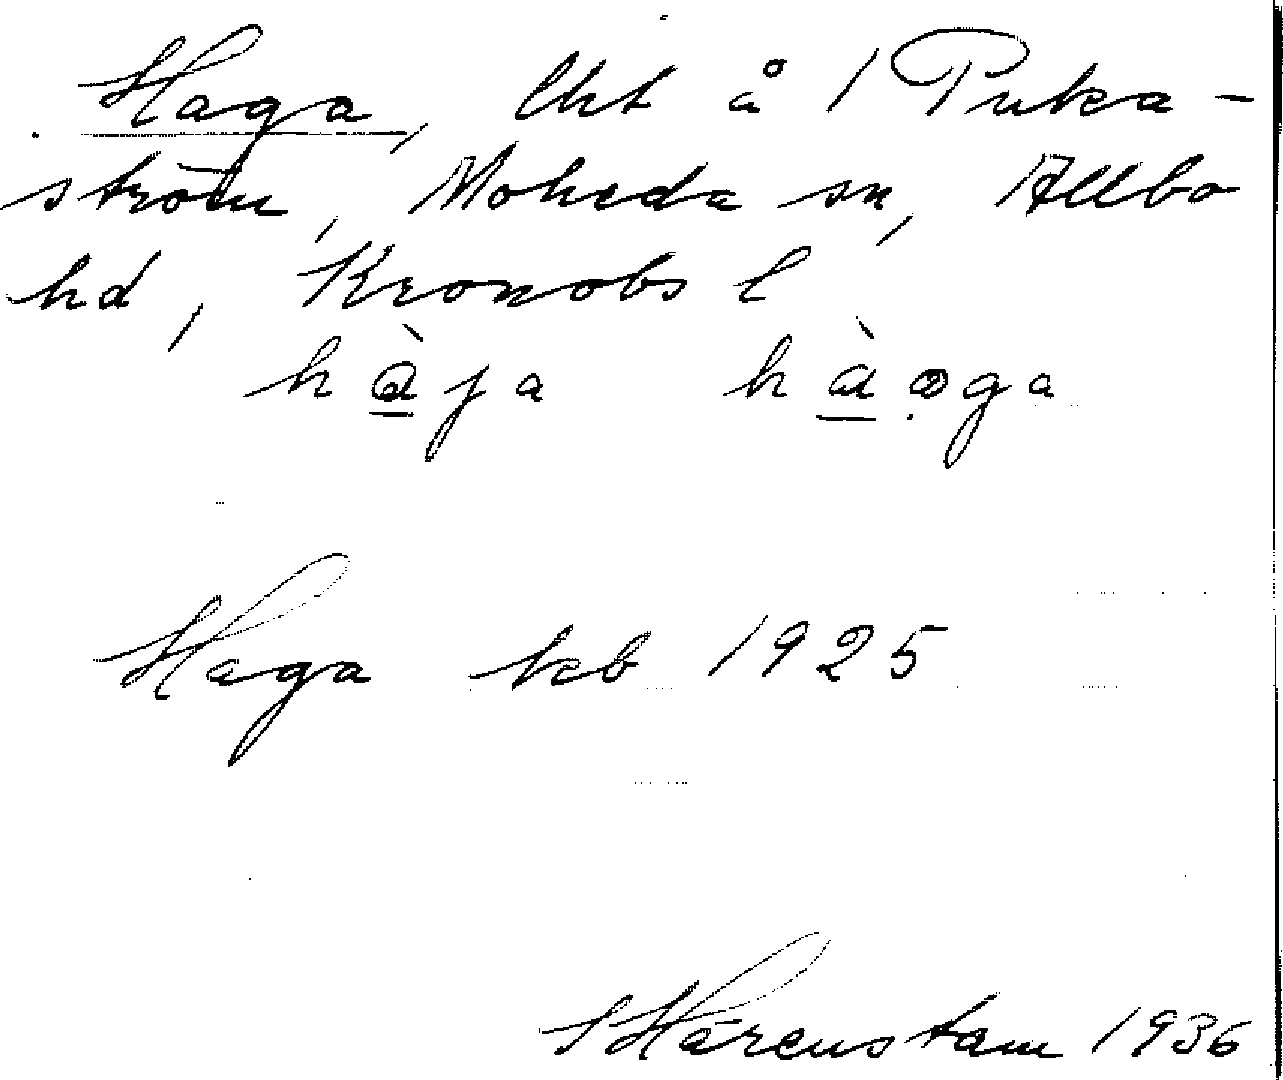 Haga, lht å 1 Puka-
ström, Moheda sn, Allbo
hd, Kronobs l
hàja hàəga
Haga kb 1925
S Härenstam 1936